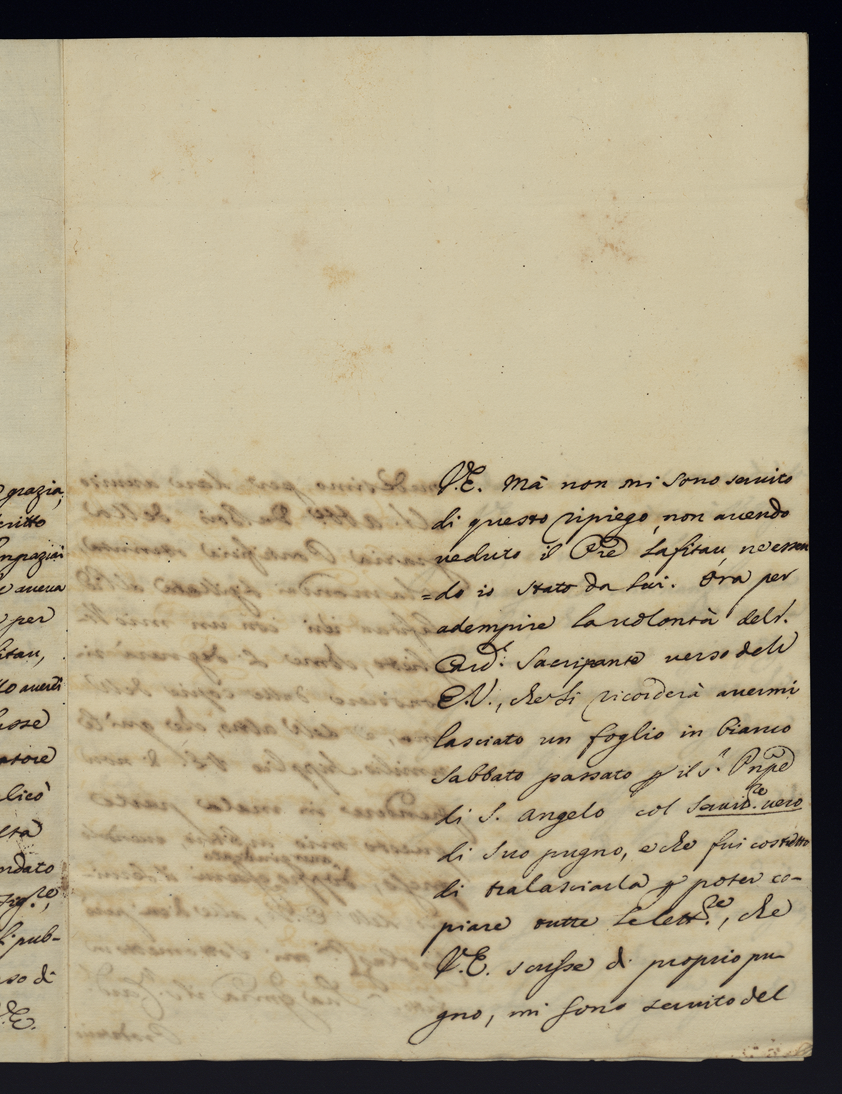 grazia,
critto
ingraziar
e aueua
per
fitau,
lo auerti
lasse
atore
licò
sta
ndato
li pub-
so di
V.E.
V.E. Mà non mi sono seruito
di questo ripiego, non auendo
ueduto il Pre Lafitau, ne essen
=do io stato da lui. Ora per
adempire la uolontà del S.r
Card.l Sacripante uerso dell'
E.V., che si ricorderà auermi
lasciato un foglio in bianco
sabbato passato p il S.r Pnpe
di S. Angelo col Seruid.re uero
di suo pugno, e che fui costretto
di tralasciarla p poter co-
piare tutte le lett.re, che
V.E. scrisse di proprio pu-
gno, mi sono seruito del